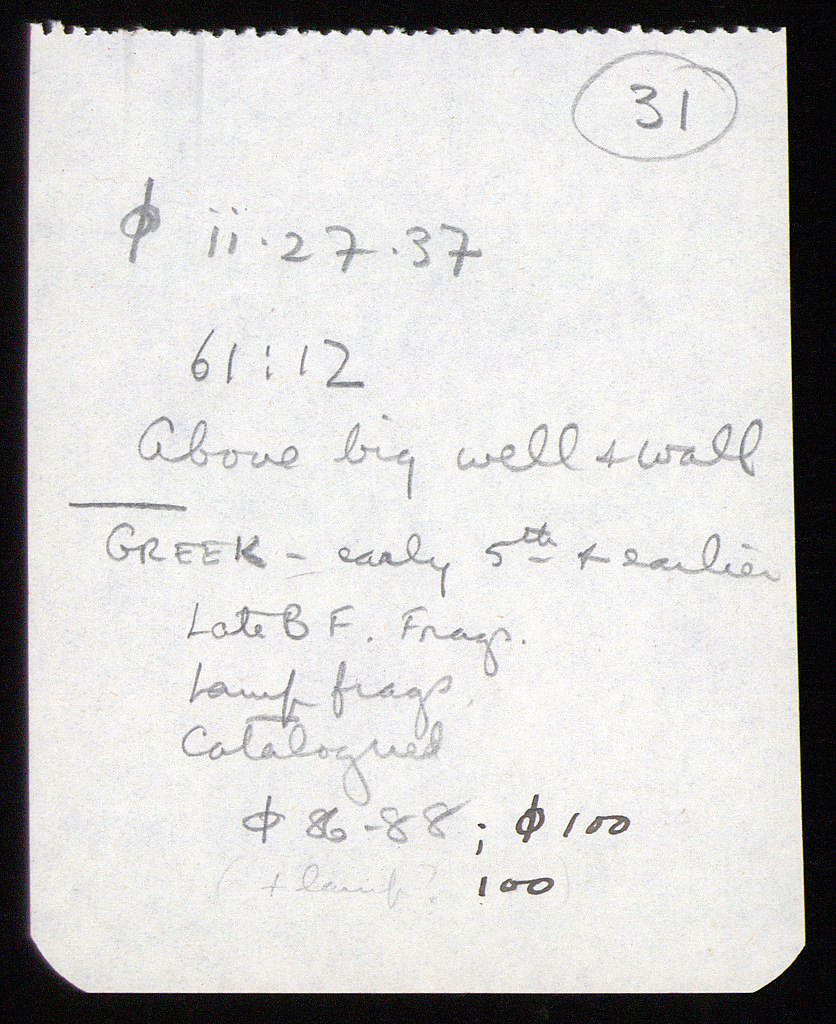 31
φ ii.27.37
61:12
Above big well & wall
GREEK - early 5th & earlier
Late B F. Frags.
Lamp frags.
Catalogued
φ 86-88; φ 100
(+ lamp? 100)